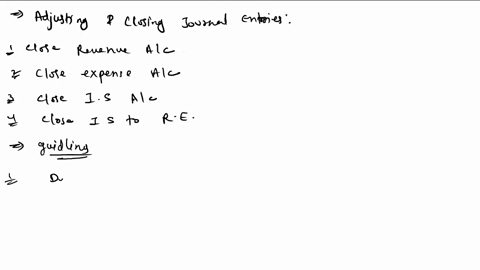 ⇒ Adjusting & Closing Journal Entries:
1 Close Revenue A/c
2 Close expense A/c
3 Close I.S A/c
4 Close I S to R.E.
⇒ guidling
1 D